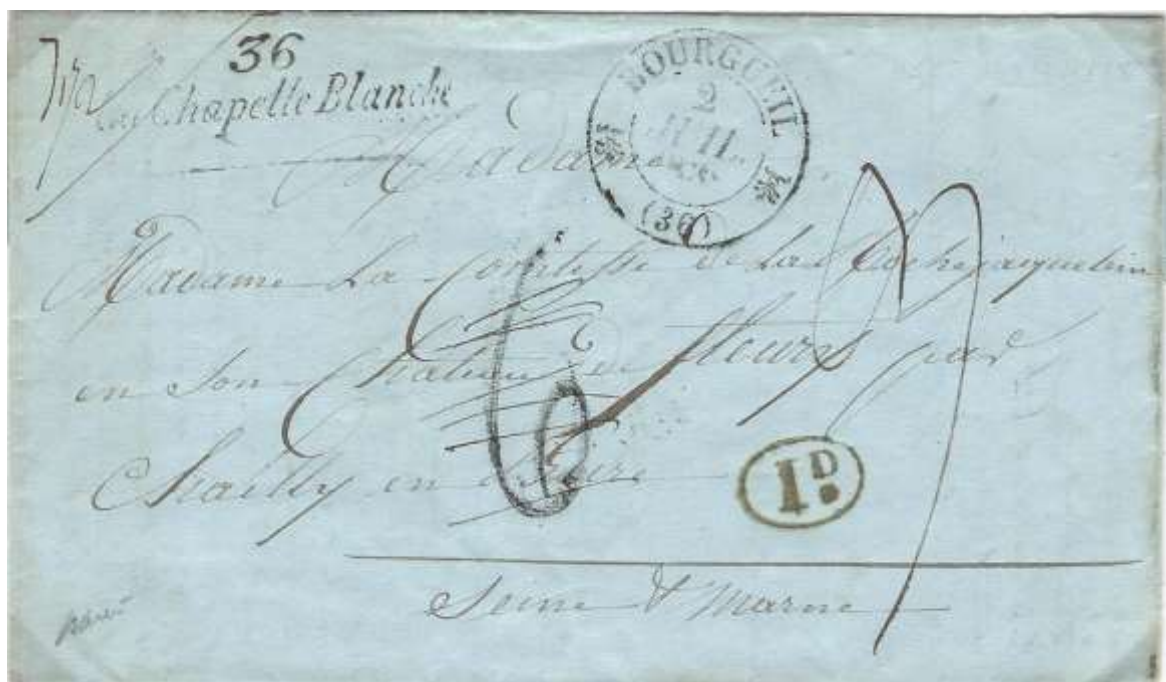 36
La Chapelle Blanche
BOURGUEIL
2
JUIL.
(36)
Madame
Madame La Comtesse de La Rochejaquelein
en Son Chateau de fleury par
Chailly en Bière
1D
Seine & Marne